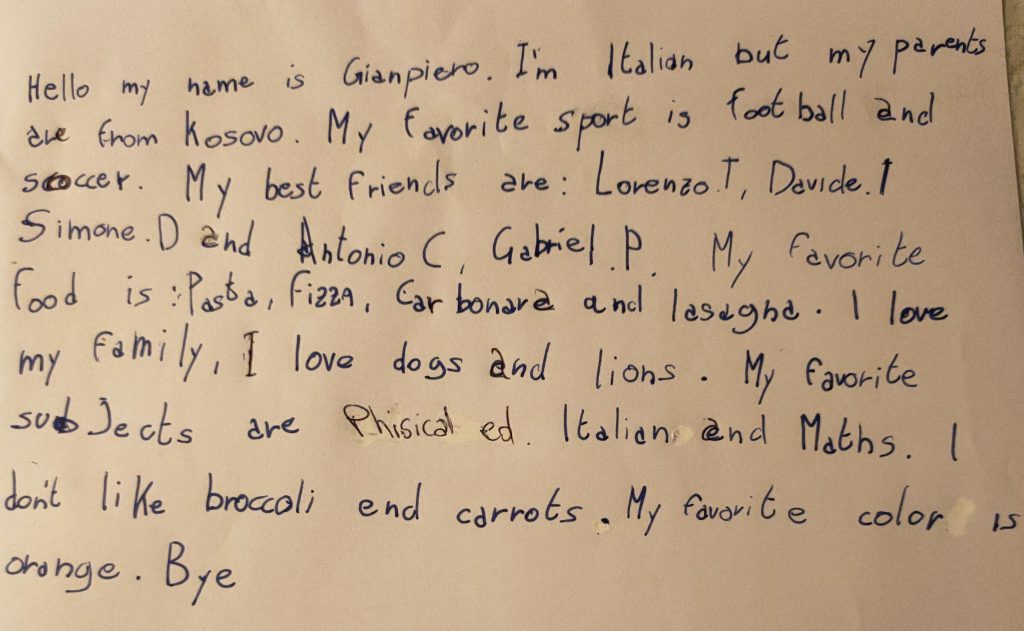 Hello my name is Gianpiero. I'm Italian but my parents
are from Kosovo. My favorite sport is football and
soccer. My best friends are: Lorenzo.T, Davide.I
Simone.D and Antonio C, Gabriel.P. My favorite
food is: Pasta, Pizza, Carbonara and lasagna. I love
my family, I love dogs and lions. My favorite
subjects are Phisical ed. Italian and Maths. I
don't like broccoli end carrots. My favorite color is
orange. Bye